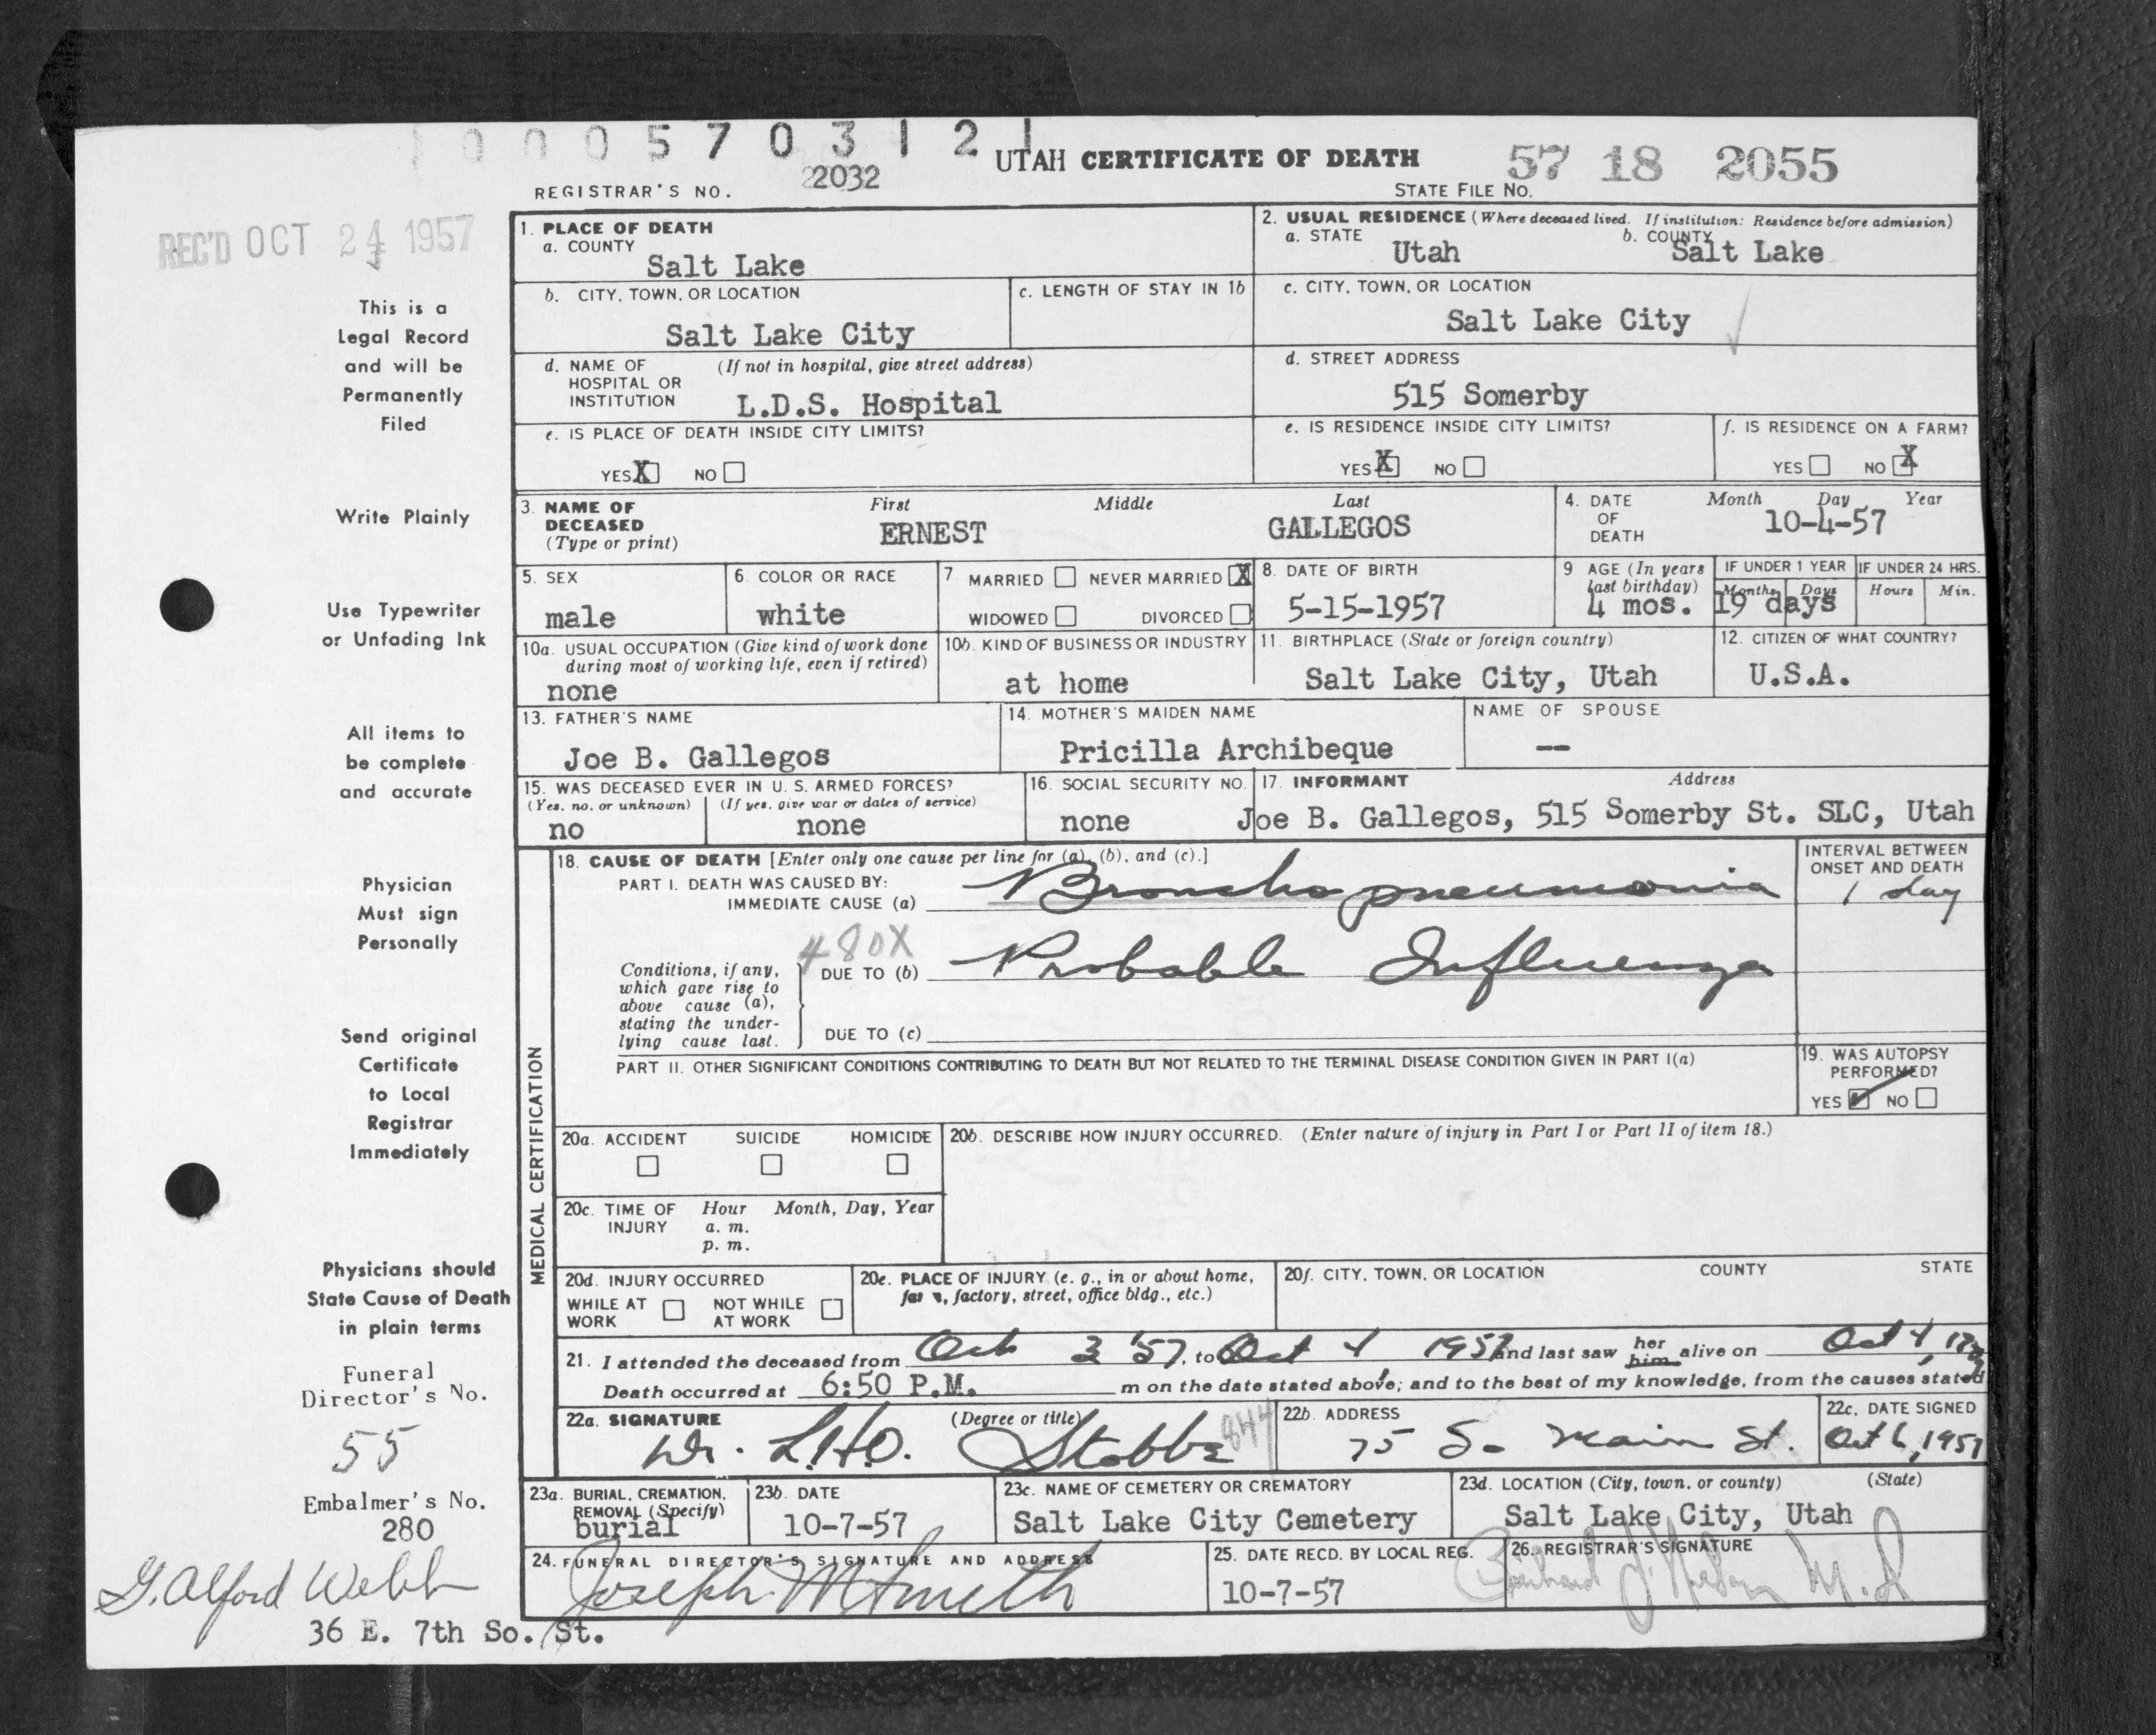 1 0 0 0 5 7 0 3 1 2 1
UTAH CERTIFICATE OF DEATH
57 18 2055
REGISTRAR'S NO. 22032
STATE FILE NO.
REC'D OCT 24 1957
This is a
Legal Record
and will be
Permanently
Filed
Write Plainly
Use Typewriter
or Unfading Ink
All items to
be complete
and accurate
Physician
Must sign
Personally
Send original
Certificate
to Local
Registrar
Immediately
Physicians should
State Cause of Death
in plain terms
Funeral
Director's No.
55
Embalmer's No.
280
G. Alford Webb
36 E. 7th So. St.
1. PLACE OF DEATH
a. COUNTY
Salt Lake
2. USUAL RESIDENCE (Where deceased lived. If institution: Residence before admission)
a. STATE
Utah
b. COUNTY
Salt Lake
b. CITY, TOWN, OR LOCATION
Salt Lake City
c. LENGTH OF STAY IN 1b
c. CITY, TOWN, OR LOCATION
Salt Lake City
d. NAME OF HOSPITAL OR INSTITUTION
(If not in hospital, give street address)
L.D.S. Hospital
d. STREET ADDRESS
515 Somerby
e. IS PLACE OF DEATH INSIDE CITY LIMITS?
YES X NO
e. IS RESIDENCE INSIDE CITY LIMITS?
YES X NO
f. IS RESIDENCE ON A FARM?
YES NO X
3. NAME OF DECEASED (Type or print)
First Middle Last
ERNEST GALLEGOS
4. DATE OF DEATH
Month Day Year
10-4-57
5. SEX
male
6 COLOR OR RACE
white
7 MARRIED NEVER MARRIED X
WIDOWED DIVORCED
8. DATE OF BIRTH
5-15-1957
9 AGE (In years last birthday)
4 mos.
IF UNDER 1 YEAR
Months Days
19 days
IF UNDER 24 HRS.
Hours Min.
10a. USUAL OCCUPATION (Give kind of work done during most of working life, even if retired)
none
10b. KIND OF BUSINESS OR INDUSTRY
at home
11. BIRTHPLACE (State or foreign country)
Salt Lake City, Utah
12. CITIZEN OF WHAT COUNTRY?
U.S.A.
13. FATHER'S NAME
Joe B. Gallegos
14. MOTHER'S MAIDEN NAME
Pricilla Archibeque
NAME OF SPOUSE
--
15. WAS DECEASED EVER IN U. S. ARMED FORCES?
(Yes, no, or unknown) (If yes, give war or dates of service)
no none
16. SOCIAL SECURITY NO.
none
17. INFORMANT Address
Joe B. Gallegos, 515 Somerby St. SLC, Utah
MEDICAL CERTIFICATION
18. CAUSE OF DEATH [Enter only one cause per line for (a), (b), and (c).]
PART I. DEATH WAS CAUSED BY:
IMMEDIATE CAUSE (a) Bronchopneumonia
INTERVAL BETWEEN ONSET AND DEATH
1 day
480X
Conditions, if any, which gave rise to above cause (a), stating the underlying cause last.
DUE TO (b) Probable Influenza
DUE TO (c)
PART II. OTHER SIGNIFICANT CONDITIONS CONTRIBUTING TO DEATH BUT NOT RELATED TO THE TERMINAL DISEASE CONDITION GIVEN IN PART I(a)
19. WAS AUTOPSY PERFORMED?
YES NO
20a. ACCIDENT SUICIDE HOMICIDE
20b. DESCRIBE HOW INJURY OCCURRED. (Enter nature of injury in Part I or Part II of item 18.)
20c. TIME OF INJURY
Hour Month, Day, Year
a. m.
p. m.
20d. INJURY OCCURRED
WHILE AT WORK NOT WHILE AT WORK
20e. PLACE OF INJURY (e. g., in or about home, farm, factory, street, office bldg., etc.)
20f. CITY, TOWN, OR LOCATION COUNTY STATE
21. I attended the deceased from Oct 3 '57, to Oct 4 1957 and last saw her him alive on Oct 4,
Death occurred at 6:50 P.M. m on the date stated above; and to the best of my knowledge, from the causes stated
22a. SIGNATURE (Degree or title)
Dr. L.H.O. Stobbe 844
22b. ADDRESS
75 So main St.
22c. DATE SIGNED
Oct 6, 1957
23a. BURIAL, CREMATION, REMOVAL (Specify)
burial
23b. DATE
10-7-57
23c. NAME OF CEMETERY OR CREMATORY
Salt Lake City Cemetery
23d. LOCATION (City, town, or county) (State)
Salt Lake City, Utah
24. FUNERAL DIRECTOR'S SIGNATURE AND ADDRESS
Joseph M Smith
25. DATE RECD. BY LOCAL REG.
10-7-57
26. REGISTRAR'S SIGNATURE
M.D